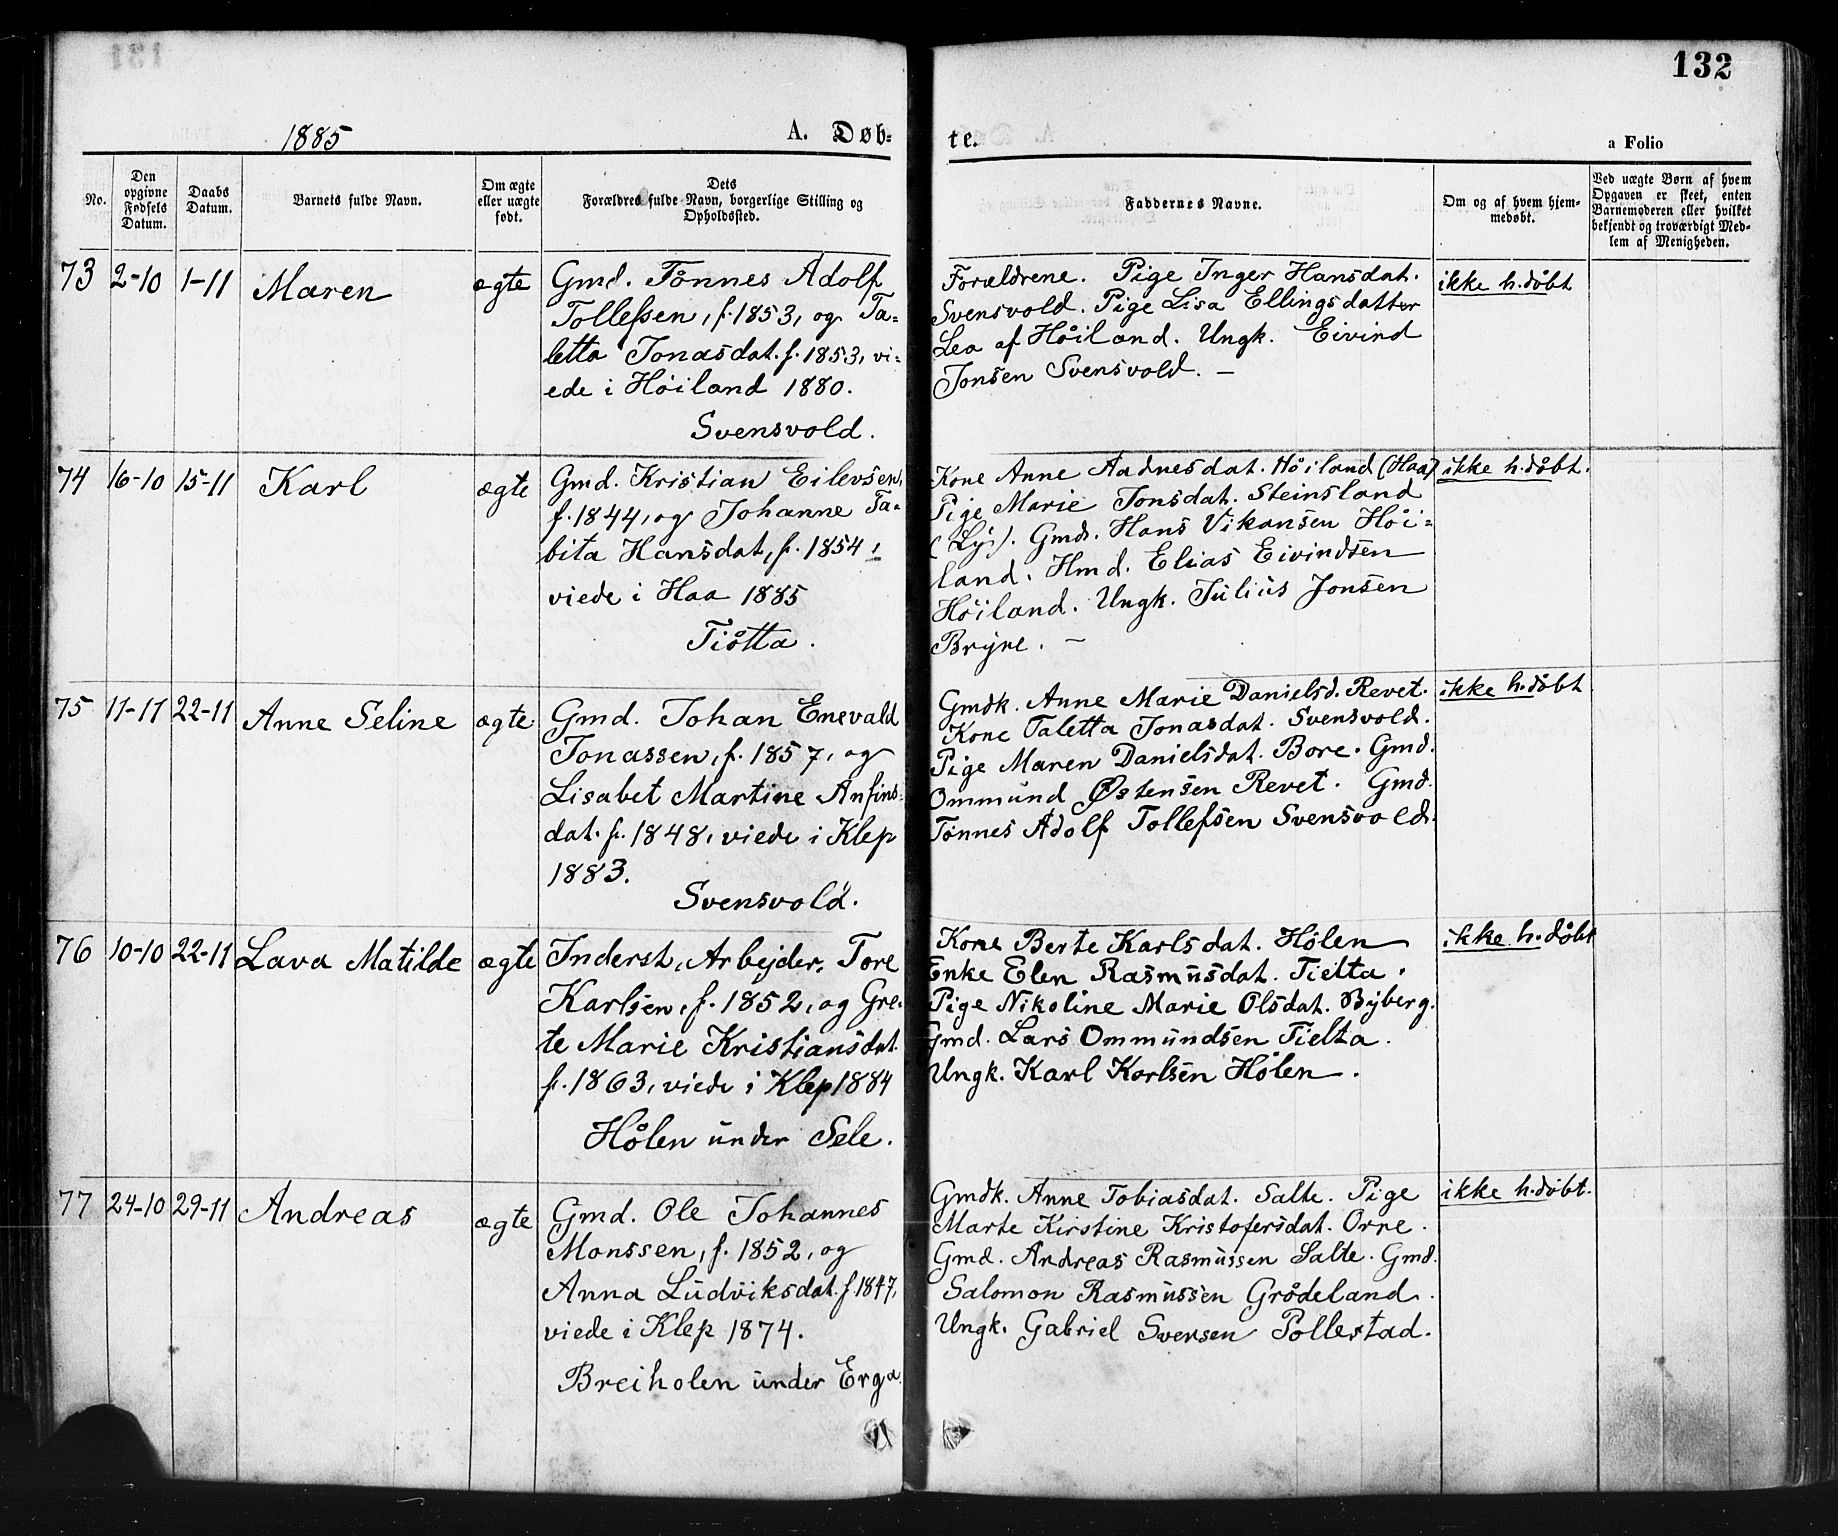 132
1885
A. Døb-
te.
a Folio
No.
Den
opgivne
Fødsels
Datum.
Daabs
Datum.
Barnets fulde Navn.
Om ægte
eller uægte
født.
Dets
Forældres fulde Navn, borgerlige Stilling og
Opholdssted.
Faddernes Navne.
Om og af hvem hjem-
medøbt.
Ved uægte Børn af hvem
Opgaven er skeet, enten
Barnemoderen eller hvilket
bekjendt og troværdigt Med-
lem af Menigheden.
73 2-10 1-11 Maren ægte
Gmd. Tønnes Adolf
Tollefsen, f. 1853, og Ta-
letta Jonasdat. f. 1853, vi-
ede i Høiland 1880.
Svensvold.
Forældrene. Pige Inger Hansdat.
Svensvold. Pige Lisa Ellingsdatter
Lea af Høiland. Ungk. Eivind
Jonsen Svensvold. —
ikke h. døbt
74 16-10 15-11 Karl ægte
Gmd. Kristian Eilevsen,
f. 1844, og Johanne Ta-
bita Hansdat, f. 1854,
viede i Haa 1885
Tiøtta.
Kone Anne Aadnesdat. Høiland (Haa)
Pige Marie Jonsdat. Steinsland
(Ly). Gmd. Hans Vikansen Høi-
land. Hmd. Elias Eivindsen
Høiland. Ungk. Julius Jonsen
Bryne. —
ikke h. døbt.
75 11-11 22-11 Anne Seline ægte
Gmd. Johan Enevald
Jonassen, f. 1857, og
Lisabet Martine Anfins-
dat. f. 1848, viede i Klep
1883.
Svensvold.
Gmdk. Anne Marie Danielsd. Revet.
Kone Taletta Jonasdat. Svensvold.
Pige Maren Danielsdat. Bore. Gmd.
Ommund Østensen Revet. Gmd.
Tønnes Adolf Tollefsen Svensvold.
ikke h. døbt
76 10-10 22-11 Lava Matilde ægte
Inderst, Arbejder, Tore
Karlsen, f. 1852, og Gre-
te Marie Kristiansdat.
f. 1863, viede i Klep 1884
Hølen under Sele.
Kone Berte Karlsdat. Hølen
Enke Elen Rasmusdat. Tielta.
Pige Nikoline Marie Olsdat. Byberg.
Gmd. Lars Ommundsen Tielta.
Ungk. Karl Karlsen Hølen.
ikke h. døbt
77 24-10 29-11 Andreas ægte
Gmd. Ole Johannes
Monssen, f. 1852, og
Anna Ludviksdat. f. 1847,
viede i Klep 1874.
Breiholen under Erga.
Gmdk. Anne Tobiasdat. Salte. Pige
Marte Kirstine Kristofersdat. Orre.
Gmd. Andreas Rasmussen Salte. Gmd.
Salomon Rasmussen Grødeland.
Ungk. Gabriel Svensen Pollestad.
ikke h. døbt.